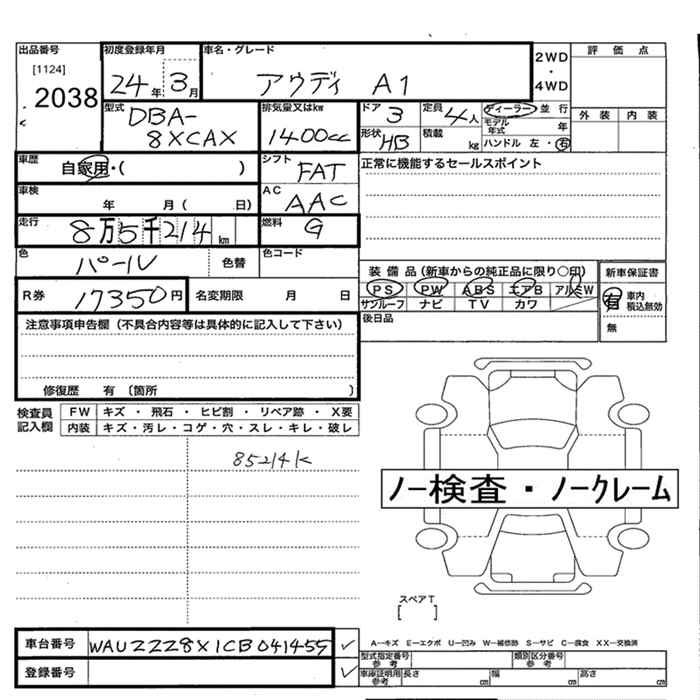 出品番号
[1124]
2038
初度登録年月
24年 3月
車名・グレード
アウディ A1
2WD
・
4WD
評価点
外装 内装
型式
DBA-
8XCAX
排気量又はkw
1400cc
ドア 3
形状 HB
定員 4人
積載 kg
ディーラー 並行
モデル年式 年
ハンドル 左・右
車歴
自家用・( )
シフト
FAT
正常に機能するセールスポイント
車検
年 月( 日)
AC
AAC
走行
8万5千214km
燃料
G
色
パール
色替
色コード
装備品(新車からの純正品に限り○印)
PS PW ABS エアB アルミW
サンルーフ ナビ TV カワ
新車保証書
有 車内積込無効
無
R券 17350円
名変期限 月 日
後日品
注意事項申告欄(不具合内容等は具体的に記入して下さい)
修復歴 有〔箇所 〕
検査員記入欄
FW キズ・飛石・ヒビ割・リペア跡・X要
内装 キズ・汚レ・コゲ・穴・スレ・キレ・破レ
85214K
ノー検査・ノークレーム
スペアT
[ ]
車台番号 WAUZZZ8X1CB041455
登録番号
A―キズ E―エクボ U―凹み W―補修跡 S―サビ C―腐食 XX―交換済
型式指定番号参考
類別区分番号参考
車庫証明用参考 長さ cm 幅 cm 高さ cm